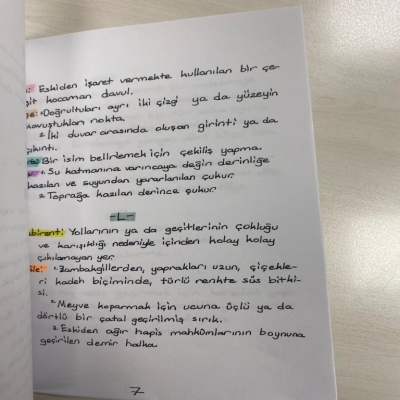 : Eskiden işaret vermekte kullanılan bir çe-
şit kocaman davul.
e: 1. Doğrultuları ayrı iki çizgi ya da yüzeyin
kavuştukları nokta.
2. İki duvar arasında oluşan girinti ya da
çıkıntı.
Bir isim belirlemek için çekiliş yapma.
1. Su katmanına varıncaya değin derinliğe
kazılan ve suyundan yararlanılan çukur.
2. Toprağa kazılan derince çukur.
-L-
abirent: Yollarının ya da geçitlerinin çokluğu
ve karışıklığı nedeniyle içinden kolay kolay
çıkılamayan yer.
ale: 1. Zambakgillerden, yaprakları uzun, çiçekle-
ri kadeh biçiminde, türlü renkte süs bitki-
si.
2. Meyve koparmak için ucuna üçlü ya da
dörtlü bir çatal geçirilmiş sırık.
3. Eskiden ağır hapis mahkûmlarının boynuna
geçirilen demir halka.
7